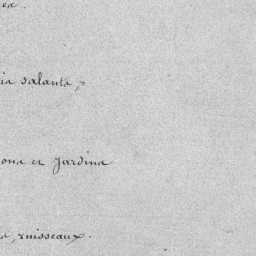 es.
is salants,
ons et jardins
s, ruisseaux.